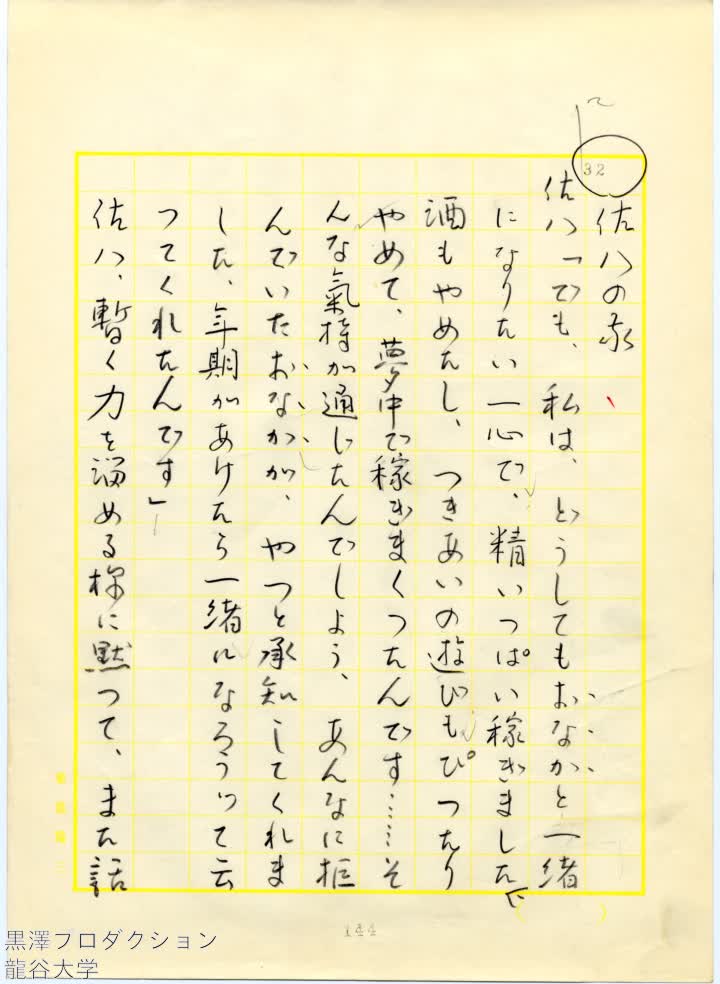 32
佐八の家
佐八「でも、私は、どうしてもおなかと一緒
になりたい一心で、精いつぱい稼ぎました
酒もやめたし、つきあいの遊びもぴつたり
やめて、夢中で稼ぎまくつたんです……そ
んな氣持が通じたんでしよう、あんなに拒
んでいたおなかが、やつと承知してくれま
した、年期があけたら一緒になろうつて云
つてくれたんです」
佐八、暫く力を溜める様に黙つて、また話
144
黒澤プロダクション
龍谷大学